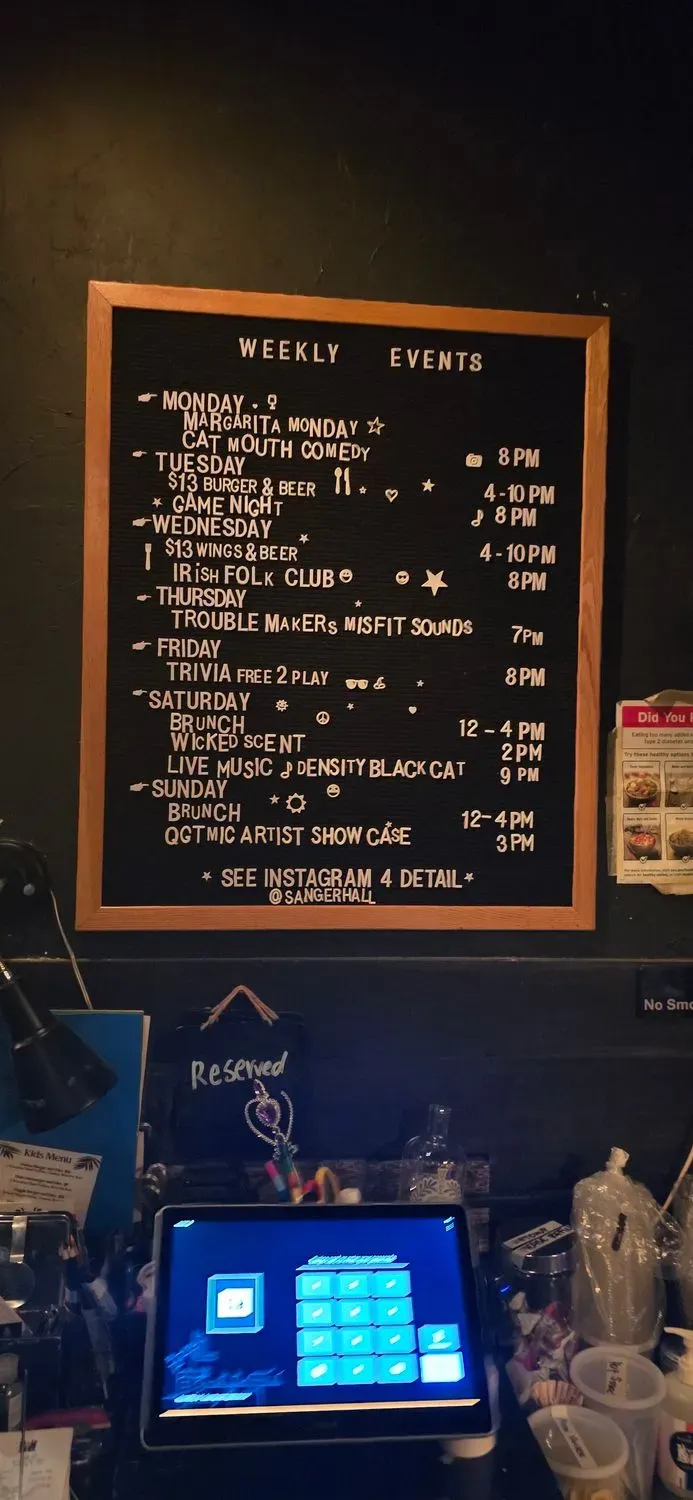 WEEKLY EVENTS
MONDAY
MARGARITA MONDAY
CAT MOUTH COMEDY 8PM
TUESDAY
$13 BURGER & BEER 4-10PM
GAME NIGHT 8PM
WEDNESDAY
$13 WINGS & BEER 4-10PM
IRiSH FOLK CLUB 8PM
THURSDAY
TROUBLE MAKERS MISFIT SOUNDS 7PM
FRIDAY
TRIVIA FREE 2 PLAY 8PM
SATURDAY
BRUNCH 12-4 PM
WICKED SCENT 2PM
LIVE MUSIC DENSITY BLACK CAT 9 PM
SUNDAY
BRUNCH 12-4PM
QGTMIC ARTIST SHOW CASE 3PM
SEE INSTAGRAM 4 DETAIL
@SANGERHALL
Did You
Eating too many added
type 2 diabetes
Try these healthy options
No Smo
Reserved
Kids Menu